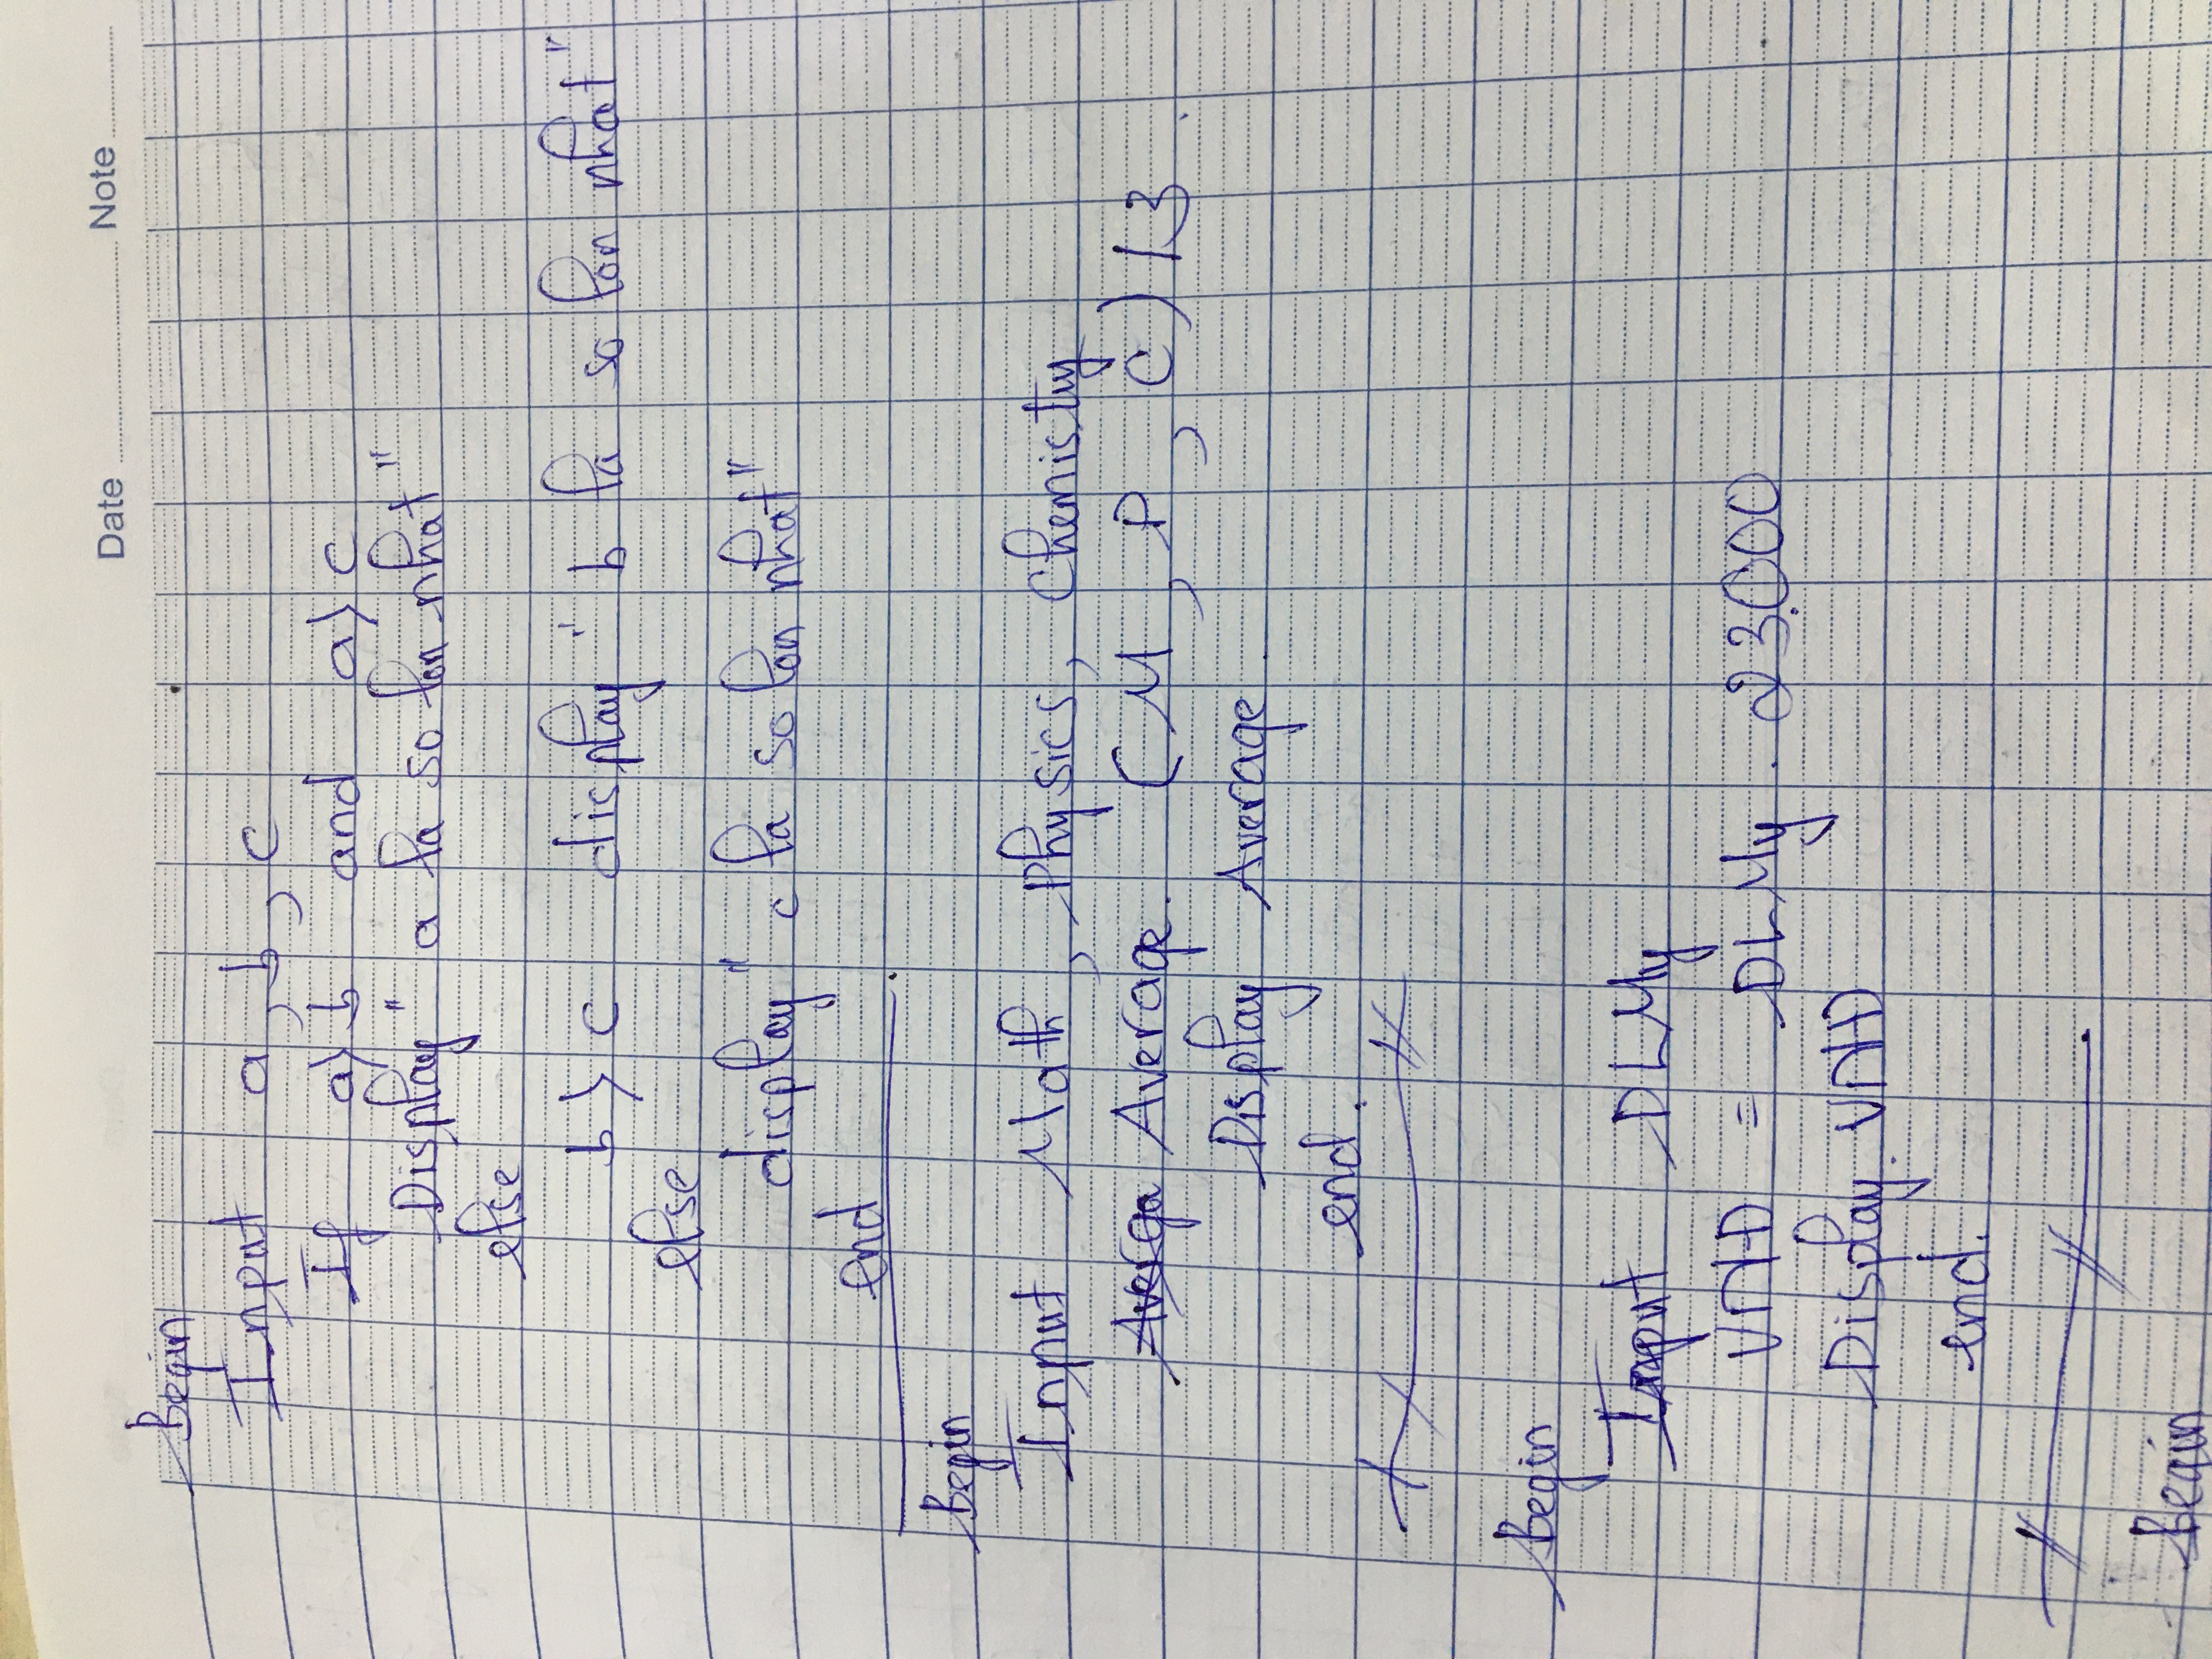 Date Note
Begin
Input a, b, c
If a> b and a> c
Display " a la so lon nhat "
else
b > c display " b la so lon nhat "
else
display " c la so lon nhat "
end
Begin
Input Math, Physics, Chemistry
Averga Average. (M, P, C) / 3.
Display Average.
end.
Begin
Input DLMy
VNĐ = DLMy . 23.000
Display. VNĐ
end.
Begin